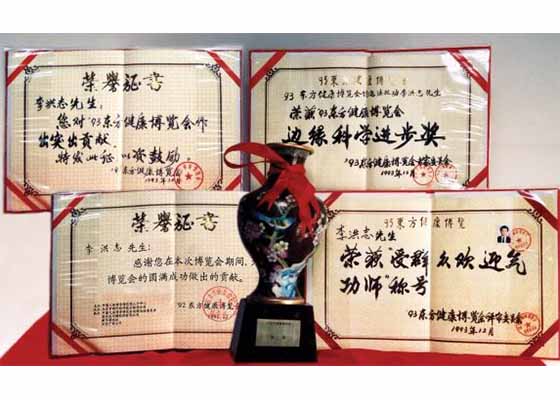 荣誉证书
李洪志先生:
您对'93东方健康博览会作
出突出贡献,
特发此证,以资鼓励。
'93东方健康博览会
1993.12月
'93東方健康博览会
'93东方健康博览会
李洪志先生
荣获'93东方健康博览会
边缘科学进步奖
'93东方健康博览会
1993年12月
荣誉证书
李洪志先生:
感谢您在本次博览会期间,
博览会的圆满成功做出的贡献。
'92东方健康博览会
'93東方健康博览
李洪志先生
荣获"受群众欢迎气
功师"称号
'93东方健康博览会评审委员会
1993年12月